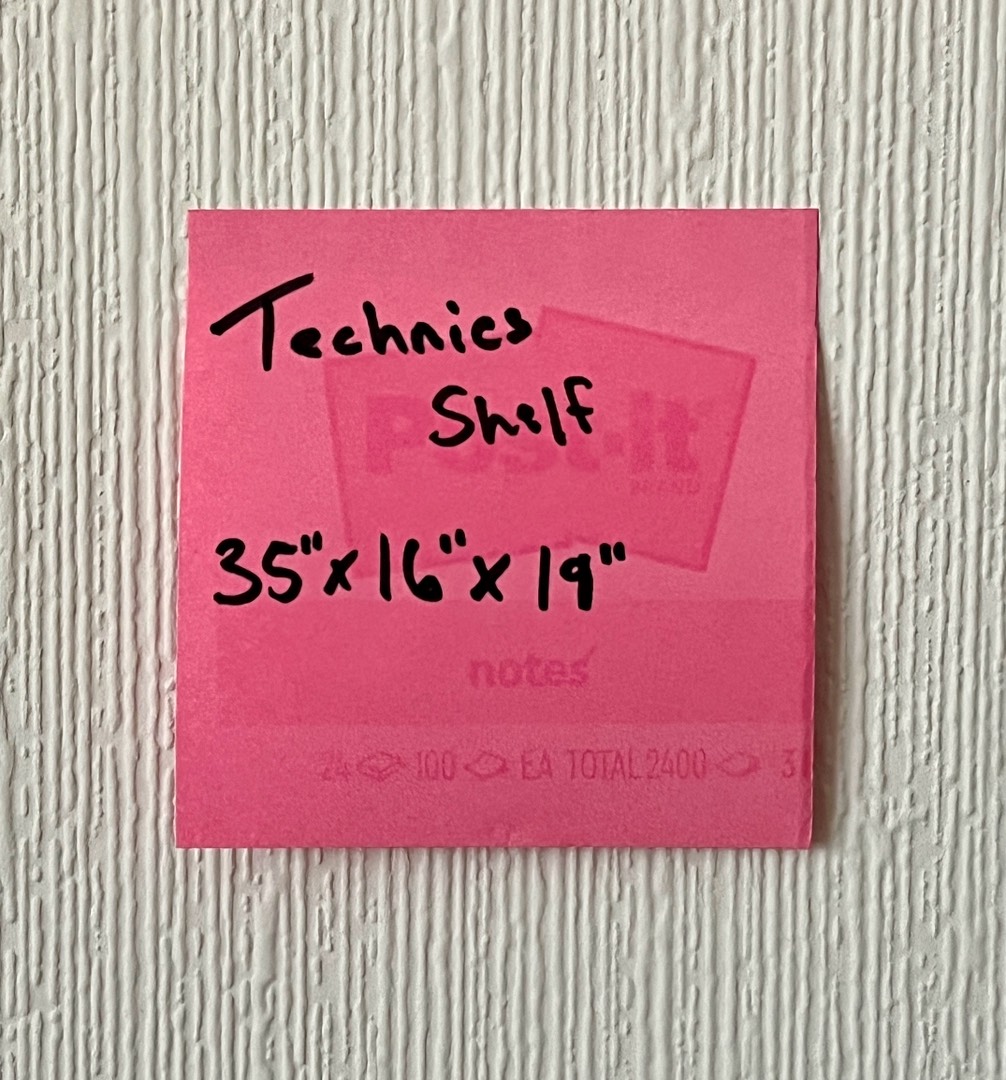 Technics
Shelf
35"x16"x19"
Post-it
BRAND
notes
24 100 EA TOTAL 2400 3